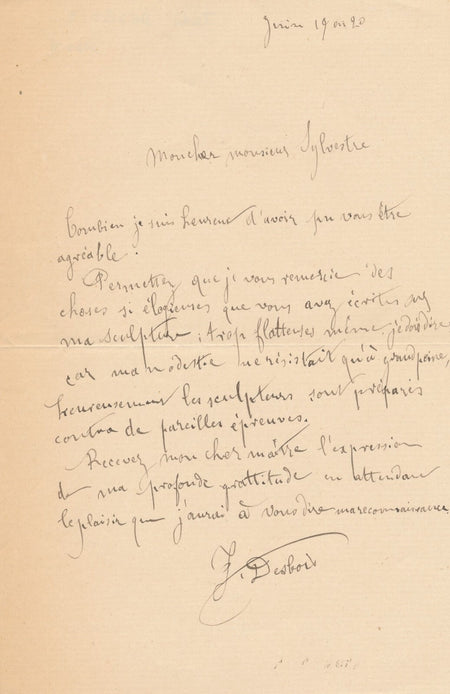 19 ou 20
Mon cher monsieur Sylvestre
Combien je suis heureux d'avoir pu vous être
agréable.
Permettez que je vous remercie des
choses si élogieuses que vous avez écrites sur
ma sculpture ; trop flatteuses même, je dois dire
car ma modestie ne résistait qu'à grand peine,
heureusement les sculpteurs sont préparés
contre de pareilles épreuves.
Recevez mon cher maître l'expression
de ma profonde grattitude en attendant
le plaisir que j'aurai à vous dire ma reconnaissance
J. Desbois